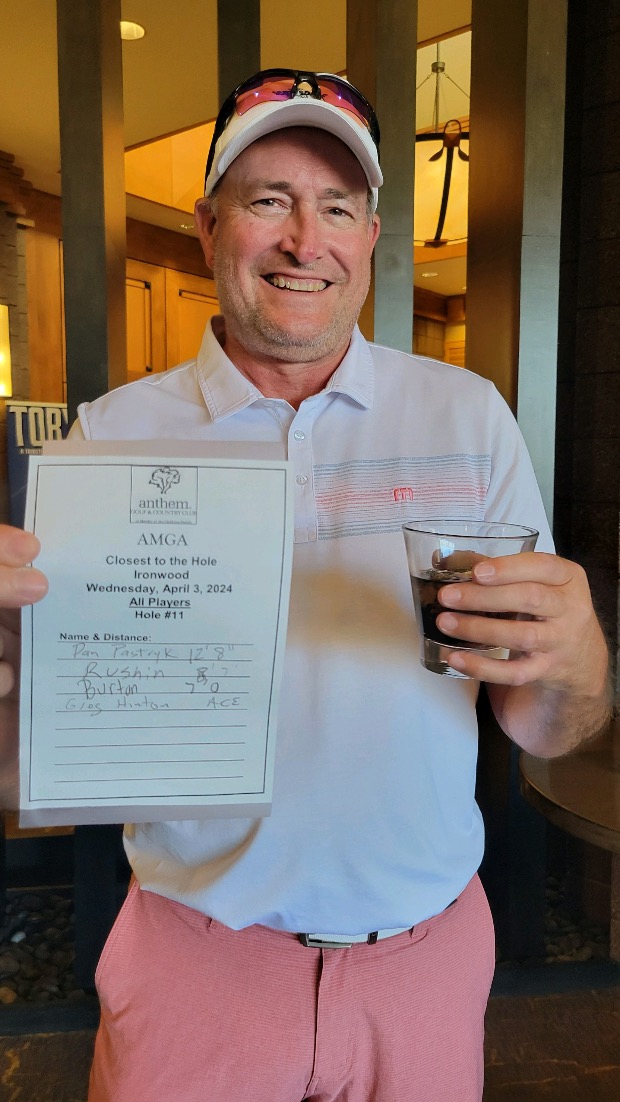 TOBY
anthem.
GOLF & COUNTRY CLUB
AMGA
Closest to the Hole
Ironwood
Wednesday, April 3, 2024
All Players
Hole #11
Name & Distance:
Dan Pastryk 12' 8"
Rushin 8' 7"
Burton 7' 0
Greg Hinton ACE